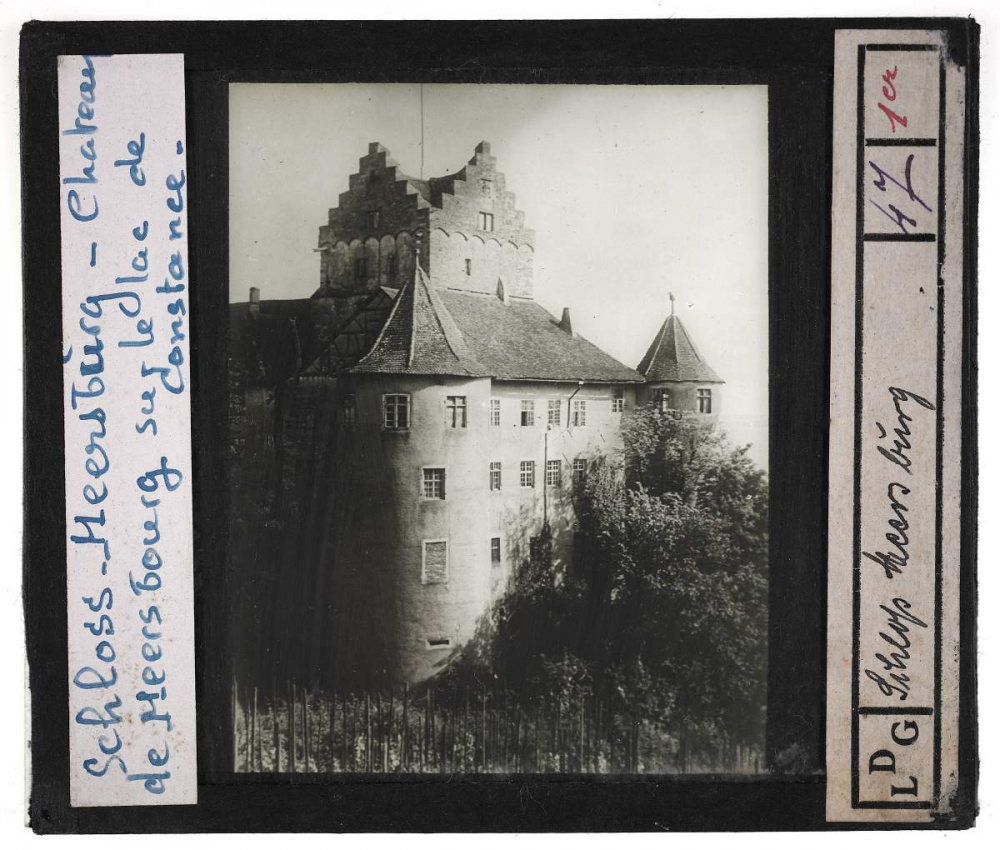 Schloss-Meersbürg - Chateau
de Meersbourg sur le lac de
Constance.
LDG
Schloß Meersbürg
47
1er